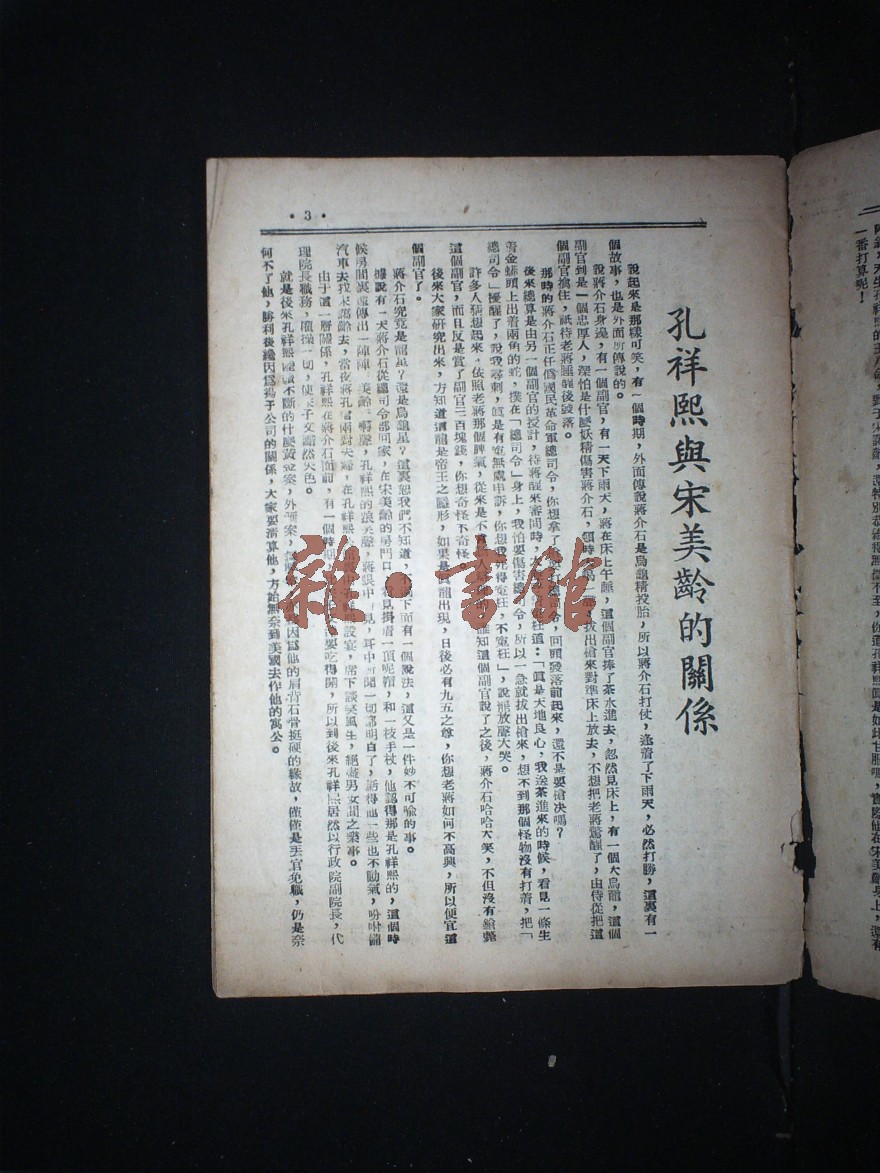 一番打算呢！
•3•
孔祥熙與宋美齡的關係
說起來是那樣可笑，有一個時期，外面傳說蔣介石是烏龜精投胎，所以蔣介石打仗，逢着了下雨天，必然打勝，這裏有一
個故事，也是外面所傳說的。
說蔣介石身邊，有一個副官，有一天下雨天，蔣在床上午睡，這個副官捧了茶水進去，忽然見床上，有一個大烏龍，這個
副官到是一個忠厚人，深怕是什麽妖精傷害蔣介石，頓時
拔出槍來對準床上放去，不想把老蔣驚醒了，由侍從把這
個副官擒住，祇待老蔣睡醒後發落。
那時的蔣介石正任僞國民革命軍總司令，你想拿了
令，回頭發落前起來，還不是要槍決嗎？
後來總算是由另一個副官的授計，待蔣醒來審問時，
枉道：「眞是天地良心，我送茶進來的時候，看見一條生
着金蛛頭上出着兩角的蛇，撲在「總司令」身上，我怕要傷害總司令，所以一急就拔出槍來，想不到那個怪物沒有打着，把「
總司令」擾醒了，說我尋刺，眞是有寃無處申訴，你想我死得寃枉，不寃枉」，說罷放聲大哭。
許多人猜想起來，依照老蔣那個脾氣，從來是不
知這個副官說了之後，蔣介石哈哈大笑，不但沒有鎗斃
這個副官，而且反是賞了副官三百塊錢，你想奇怪不奇怪
後來大家研究出來，方知道這龍是帝王之隱形，如果是
龍出現，日後必有九五之尊，你想老蔣如何不高興，所以便宜這
個副官了。
蔣介石究竟是龍星？還是烏龜星？這裏恕我們不知道，不
下面有一個說法，這又是一件妙不可喻的事。
據說有一天蔣介石從總司令部回家，在宋美齡的房門口，看見掛着一頂呢帽，和一枝手杖，他認得那是孔祥熙的，這個時
候房間裏還傳出一陣陣
孔祥熙的浪笑聲，蔣眼中所見，耳中所聞一切都明白了，虧得他一些也不動氣，吩咐備
汽車去找宋藹齡去，當夜蔣孔宋兩對夫婦，在孔祥熙公
設宴，席下談笑風生，絕盡男女間之樂事。
由于這一層關係，孔祥熙在蔣介石面前，有一個時期
要吃得開，所以到後來孔祥熙居然以行政院副院長，代
理院長職務，獨攬一切，使宋子文黯然失色。
就是後來孔祥熙陸續不斷的什麽黃金案，外匯案，
因爲他的肩背石骨挺硬的緣故，僅僅是丟官免職，仍是奈
何不了他，勝利後纔因爲揚子公司的關係，大家要淸算他，方始無奈到美國去作他的寓公。
雜·書館